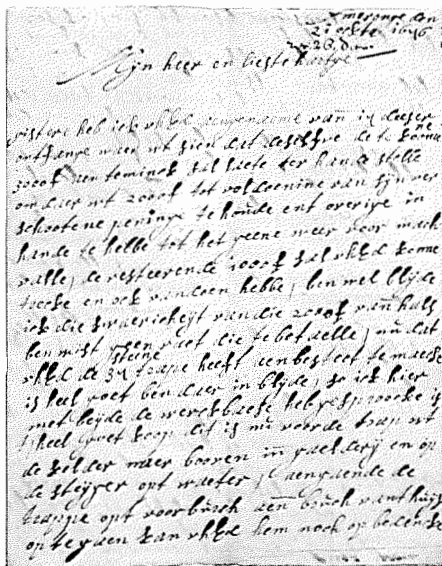 Amerongen den
21 octo 1676
Mijn heer en lieste hartje
gistere heb ick uhEd aengename van in deeser
ontfange waer ut sien dat deselfve de
3000f aen teminck sal laete ter hande stelle
om daer ut 2000f tot voldoeninge van sijn ver
schootene peninge te houde ent overige in
hande te hebbe tot het geene weer voor mach
valle, de resteerende 1000f sal uhEd konne
en ock van doen hebbe, ben wel blijde
ick die swaericheijt van die 2000f van hals
ben wist geen raet die te betaelle, nu dat
uhEd de steine trape heeft aen besteet te maecke
is heel goet ben daer in blijde, so ick hier
met beijde de werckbaese heb gesproocke is
heel goet koop dit is nu voorde trap ut
de kelder naer boven in gaelderij en op
de steijger opt waeter, aengaende de
trappe opt voorburch aen burch vant huijs
op te gaen kan uhEd hem noch op bedencke